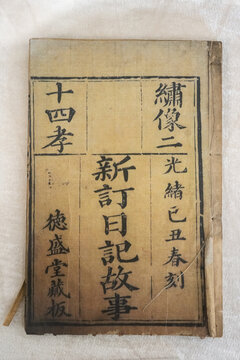 繡像二
十四孝
光緒己丑春刻
新訂日記故事
德盛堂藏板